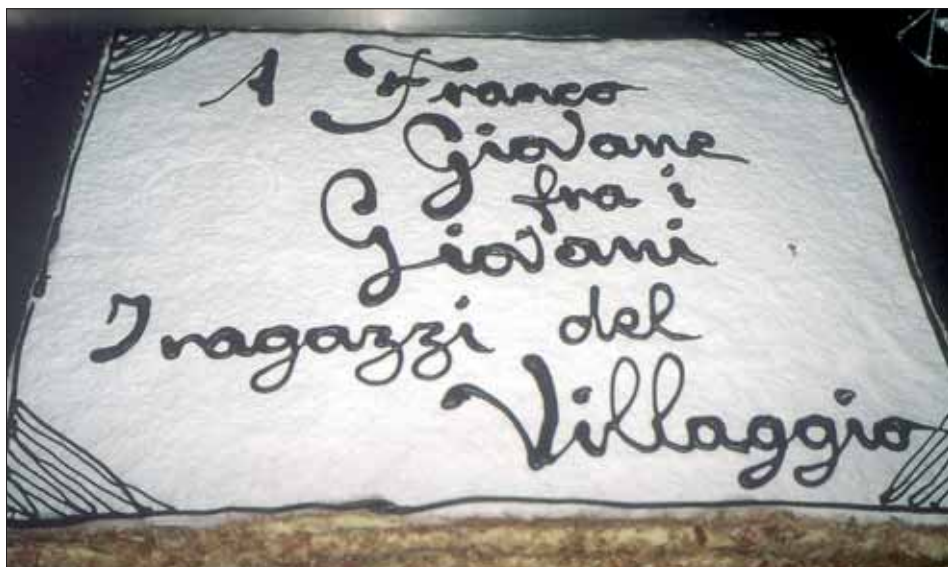 A Franco
Giovane
fra i
Giovani
I ragazzi del
Villaggio